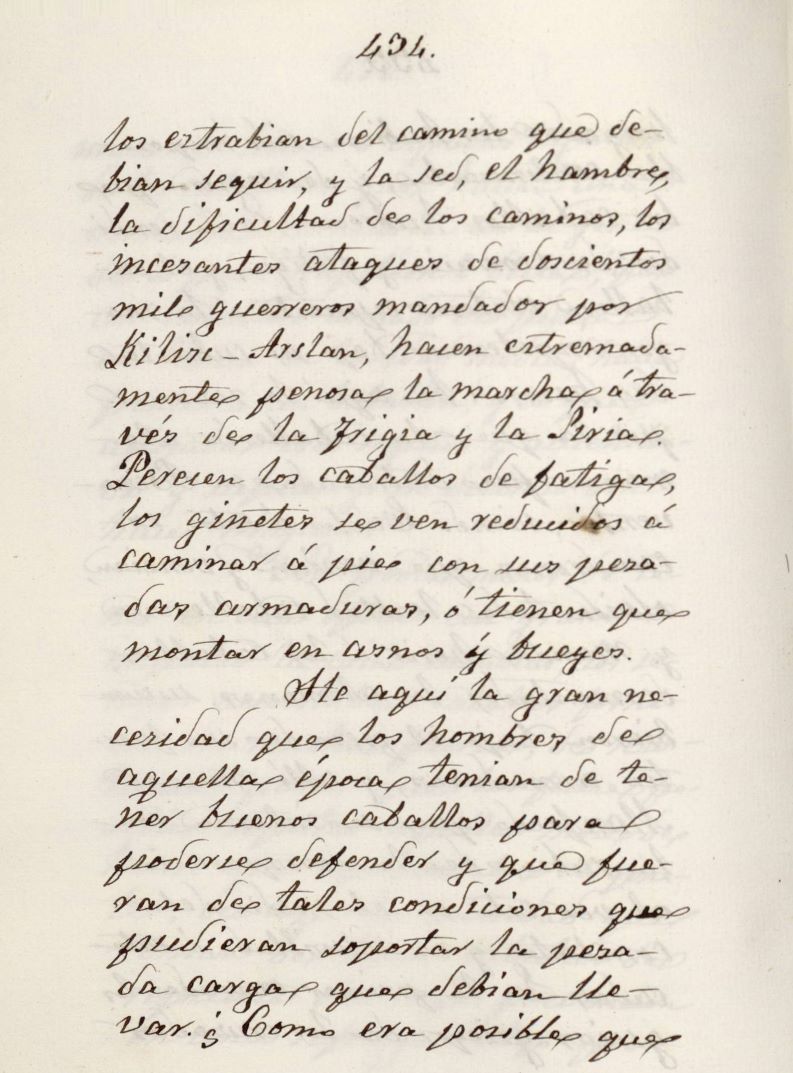 434.
los estrabian del camino que de-
bian seguir, y la sed, el hambre,
la dificultad de los caminos, los
incesantes ataques de doscientos
mil guerreros mandados por
Kilisc-Arslan, hacen estremada-
mente penosa la marcha á tra-
vés de la Frigia y la Siria.
Perecen los caballos de fatiga,
los ginetes se ven reducidos á
caminar á pie con sus pesa-
das armaduras, ó tienen que
montar en asnos ý bueyes.
He aquí la gran ne-
cesidad que los hombres de
aquella época tenian de te-
ner buenos caballos para
poderse defender y que fue-
ran de tales condiciones que
pudieran soportar la pesa-
da carga que debian lle-
var. ¿Como era posible que